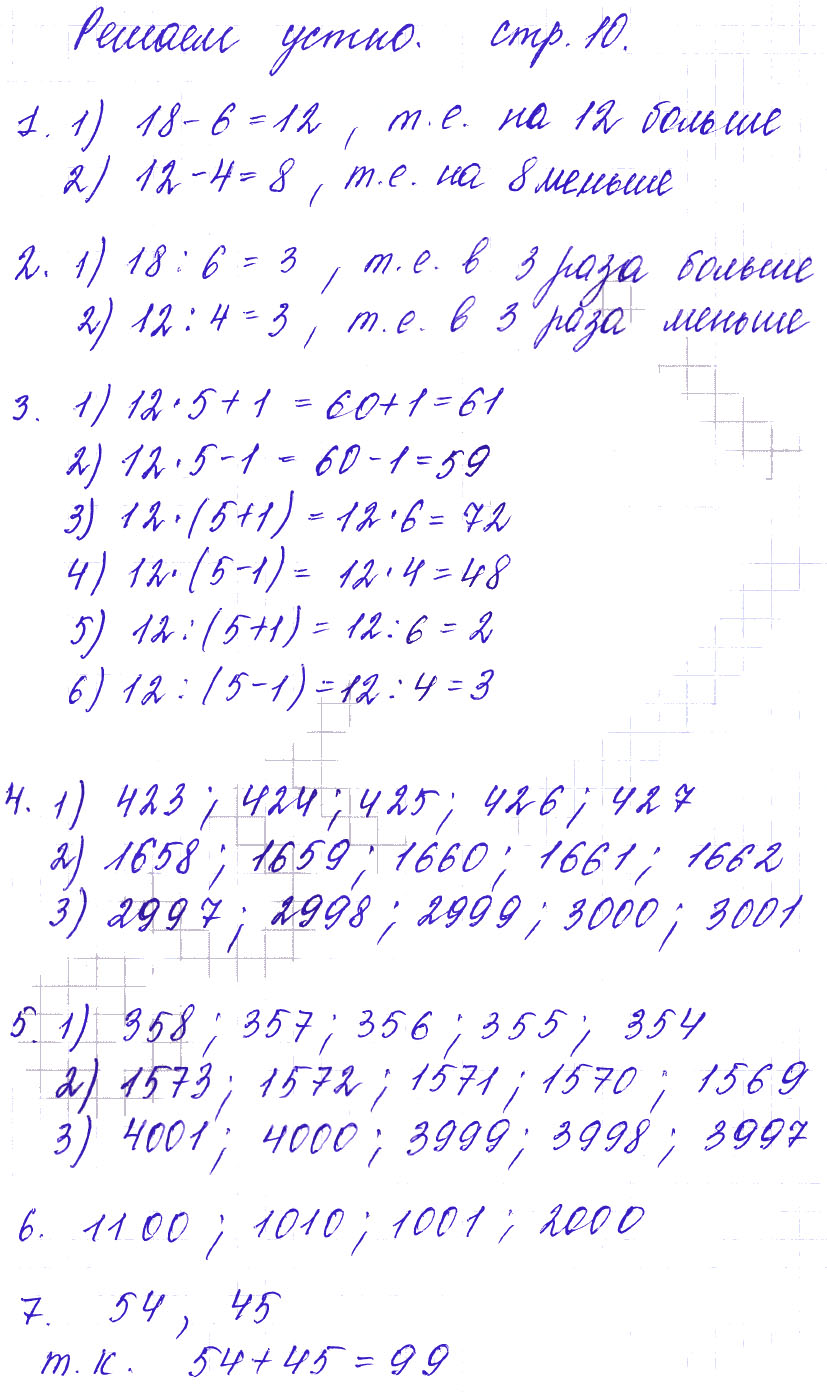 Решаем устно. стр. 10.
1. 1) 18 - 6 = 12 , т.е. на 12 больше
2) 12 - 4 = 8 , т.е. на 8 меньше
2. 1) 18 : 6 = 3 , т.е. в 3 раза больше
2) 12 : 4 = 3 , т.е. в 3 раза меньше
3. 1) 12 · 5 + 1 = 60 + 1 = 61
2) 12 · 5 - 1 = 60 - 1 = 59
3) 12 · (5 + 1) = 12 · 6 = 72
4) 12 · (5 - 1) = 12 · 4 = 48
5) 12 : (5 + 1) = 12 : 6 = 2
6) 12 : (5 - 1) = 12 : 4 = 3
4. 1) 423 ; 424 ; 425 ; 426 ; 427
2) 1658 ; 1659 ; 1660 ; 1661 ; 1662
3) 2997 ; 2998 ; 2999 ; 3000 ; 3001
5. 1) 358 ; 357 ; 356 ; 355 ; 354
2) 1573 ; 1572 ; 1571 ; 1570 ; 1569
3) 4001 ; 4000 ; 3999 ; 3998 ; 3997
6. 1100 ; 1010 ; 1001 ; 2000
7. 54 , 45
т.к. 54 + 45 = 99